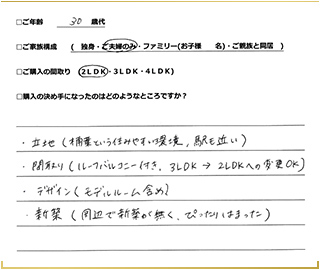 □ご年齢 30 歳代
□ご家族構成 ( 独身・ご夫婦のみ・ファミリー(お子様 名)・ご親族と同居 )
□ご購入の間取り (2LDK・3LDK・4LDK)
□購入の決め手になったのはどのようなところですか?
・立地 (桶業という住みやすい環境, 駅も近い)
・間取り (ルーフバルコニー付き, 3LDK → 2LDKへの変更OK)
・デザイン (モデルルーム含め)
・新築 (周辺で新築が無く、ぴったりはまった)